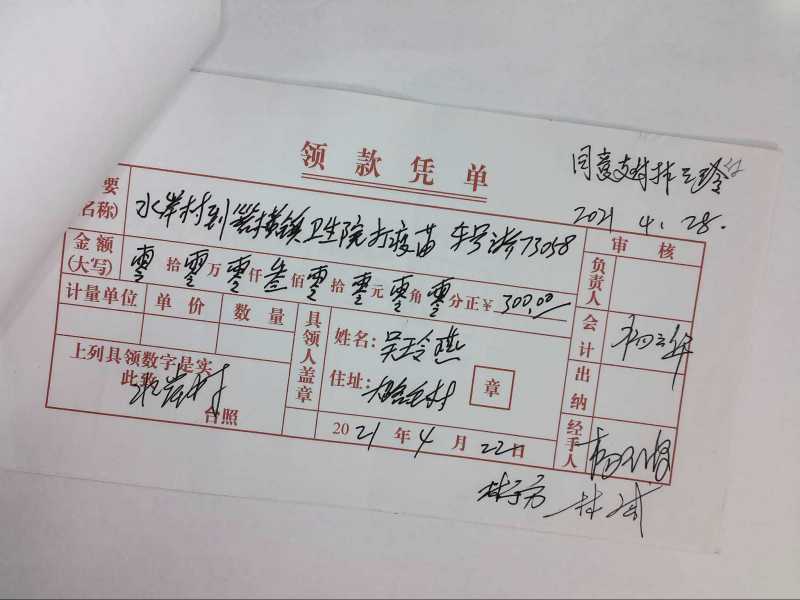 领款凭单
同意支付
2021.4.28.
要
名称)
水岸村到 横镇卫生院打疫苗 车号 73058
审核
金额
(大写)
零拾零万零仟叁佰零拾零元零角零分正¥300.00
负责人
计量单位 单价 数量
具领人盖章
姓名:吴玲燕
会计
上列具领数字是实
此致
台照
住址: 村
章
出纳
2021年4月22日
经手人
林 林斌